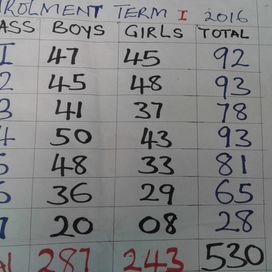 ROLMENT TERM I 2016
ASS BOYS GIRLS TOTAL
1 47 45 92
2 45 48 93
3 41 37 78
4 50 43 93
5 48 33 81
6 36 29 65
7 20 08 28
AL 287 243 530